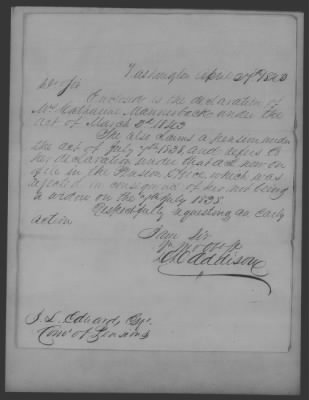 Washington April 27th 1843
Dr Sir
Enclosed is the declaration of
Mrs Catharine Mannerback under the
act of March 3d 1843.
She also claims a pension under
the act of July 7th 1838 and refers to
her declaration under that act now on
file in the Pension Office which was
rejected in consequence of her not being
a widow on the 7th July 1838
Respectfully requesting an early
action
I am Sir
Yr mo ob st
Maddison
J. L. Edwards, Esqr.
Comr of Pensions